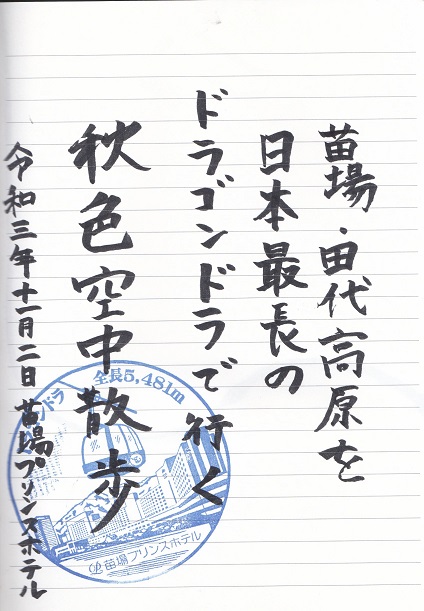 苗場・田代高原を
日本最長の
ドラゴンドラで行く
秋色空中散歩
令和三年十一月二日 苗場プリンスホテル
ゴンドラ
全長5,481m
苗場プリンスホテル